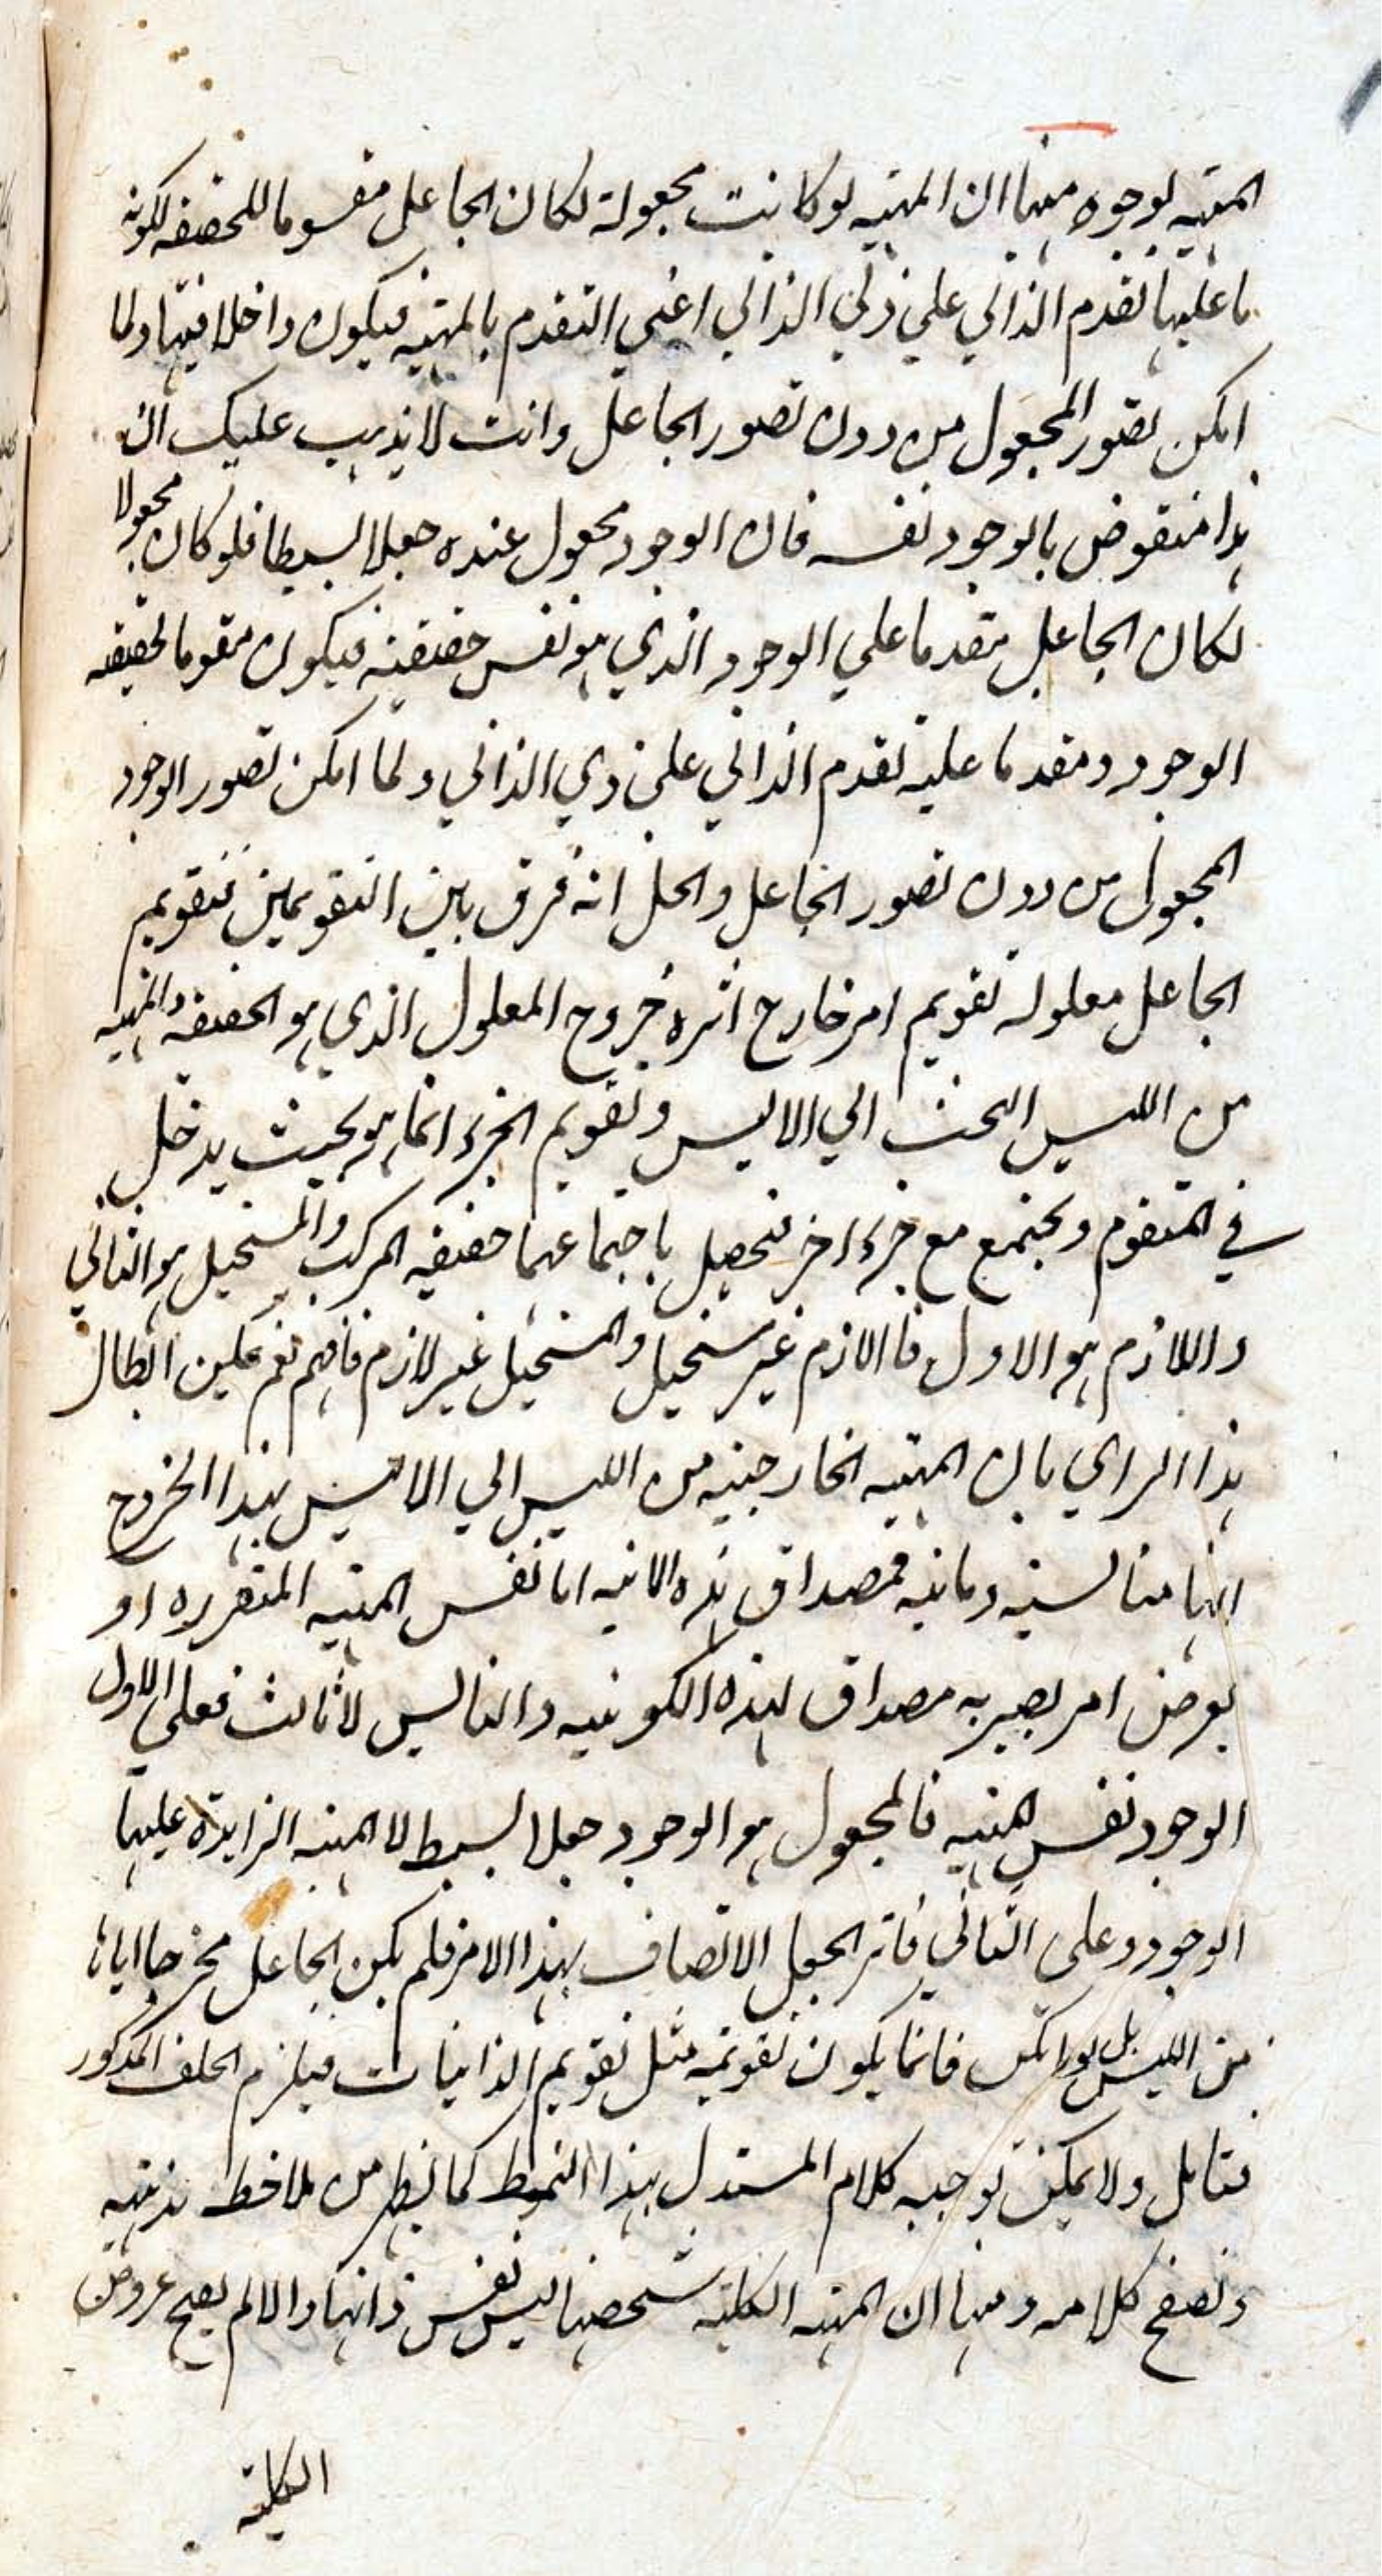 المهيه لوجوه منها ان المهيه لو كانت مجعولة لكان الجاعل مقوما للحقيقه لكونه
ما عليها تقدم الذاتي علي ذي الذاتي اعني التقدم بالمهيه فيكون داخلا فيها ولما
امكن تصور المجعول من دون تصور الجاعل وانت لا يذهب عليك ان
هذا منقوض بالوجود نفسه فان الوجود مجعول عنده جعلا بسيطا فلو كان مجعولا
لكان الجاعل متقدما علي الوجود الذي هو نفس حقيقته فيكون مقوما لحقيقه
الوجود ومقدما عليه تقدم الذاتي علي ذي الذاتي ولما امكن تصور الوجود
المجعول من دون تصور الجاعل والحل انه فرق بين التقويمين فتقويم
الجاعل معلوله تقويم امر خارج اثره خروج المعلول الذي هو الحقيقه والمهيه
من الليس البحت الي الايس وتقويم الجزء انما هو بحيث يدخل
في المتقوم ويجتمع مع جزء اخر فتحصل باجتماعهما حقيقه المركب والمستحيل هو الثاني
واللازم هو الاول فاللازم غير مستحيل والمستحيل غير لازم فافهم نعم يمكن ابطال
هذا الراي بان المهيه الخارجيه من الليس الي الايس بهذا الخروج
انها فمصداق هذه الانيه اما نفس المهيه المتقرره او
يعرض امر يصير به مصداق لهذه الكونيه والثالث لا ثالث فعلي الاول
الوجود نفس المهيه فالمجعول هو الوجود جعلا بسيطا لا المهيه الزايدة عليها
الوجود وعلى الثاني فاثر الجعل الاتصاف بهذا الامر فلم يكن الجاعل مخرجا اياها
من الليس بل فانما يكون تقويمه مثل تقويم الذاتيات فيلزم الخلف المذكور
فتامل ولا يمكن توجيه كلام المستدل بهذا النمط كما يظهر من ملاحظه مذهبه
وتصفح كلامه ومنها ان المهيه الكليه تشخصها ليس نفس ذاتها والا لم يصح عروض
الكليه